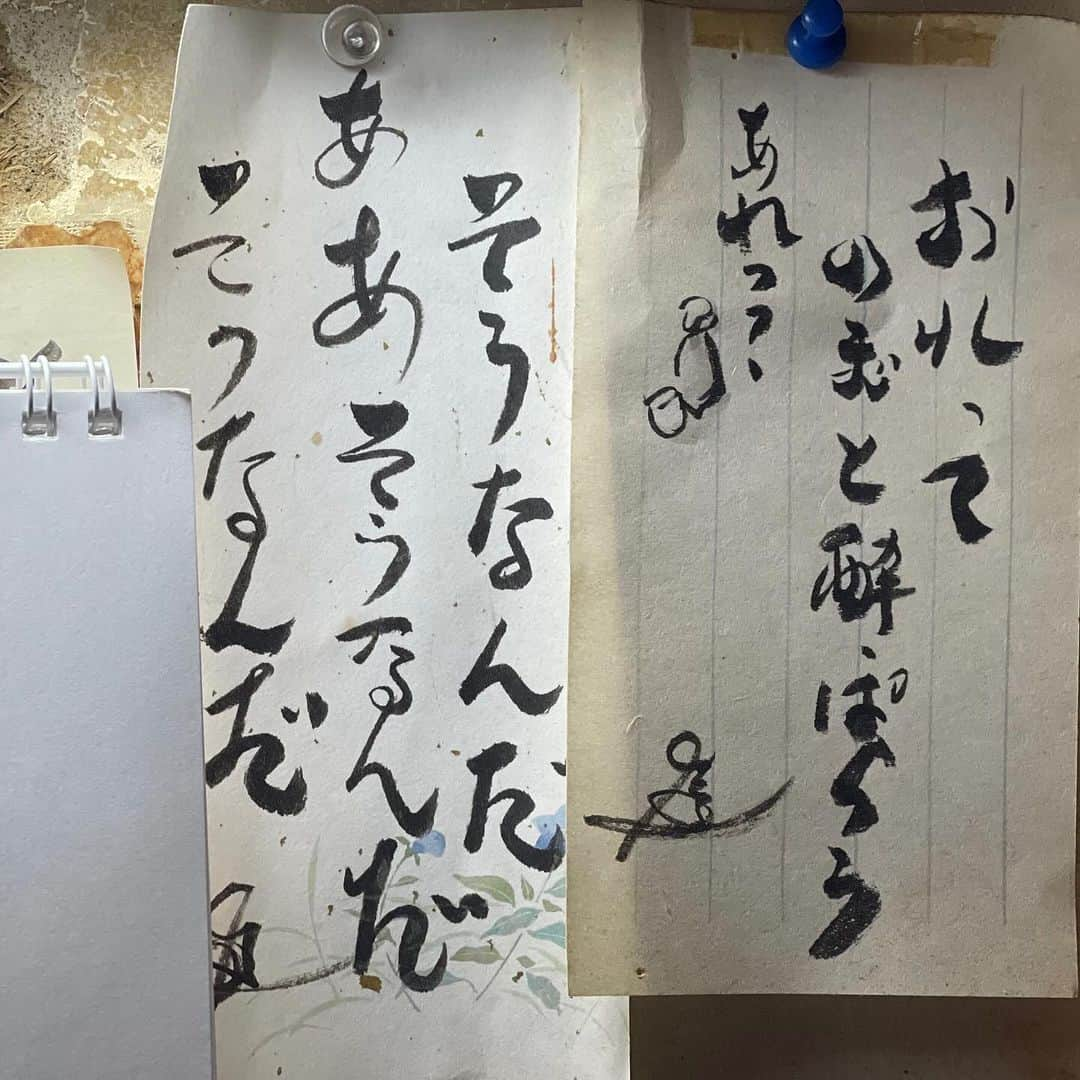 おれって
のむと酔っぱらう
あれっ
そうなんだ
ああそうなんだ
そうなんだ